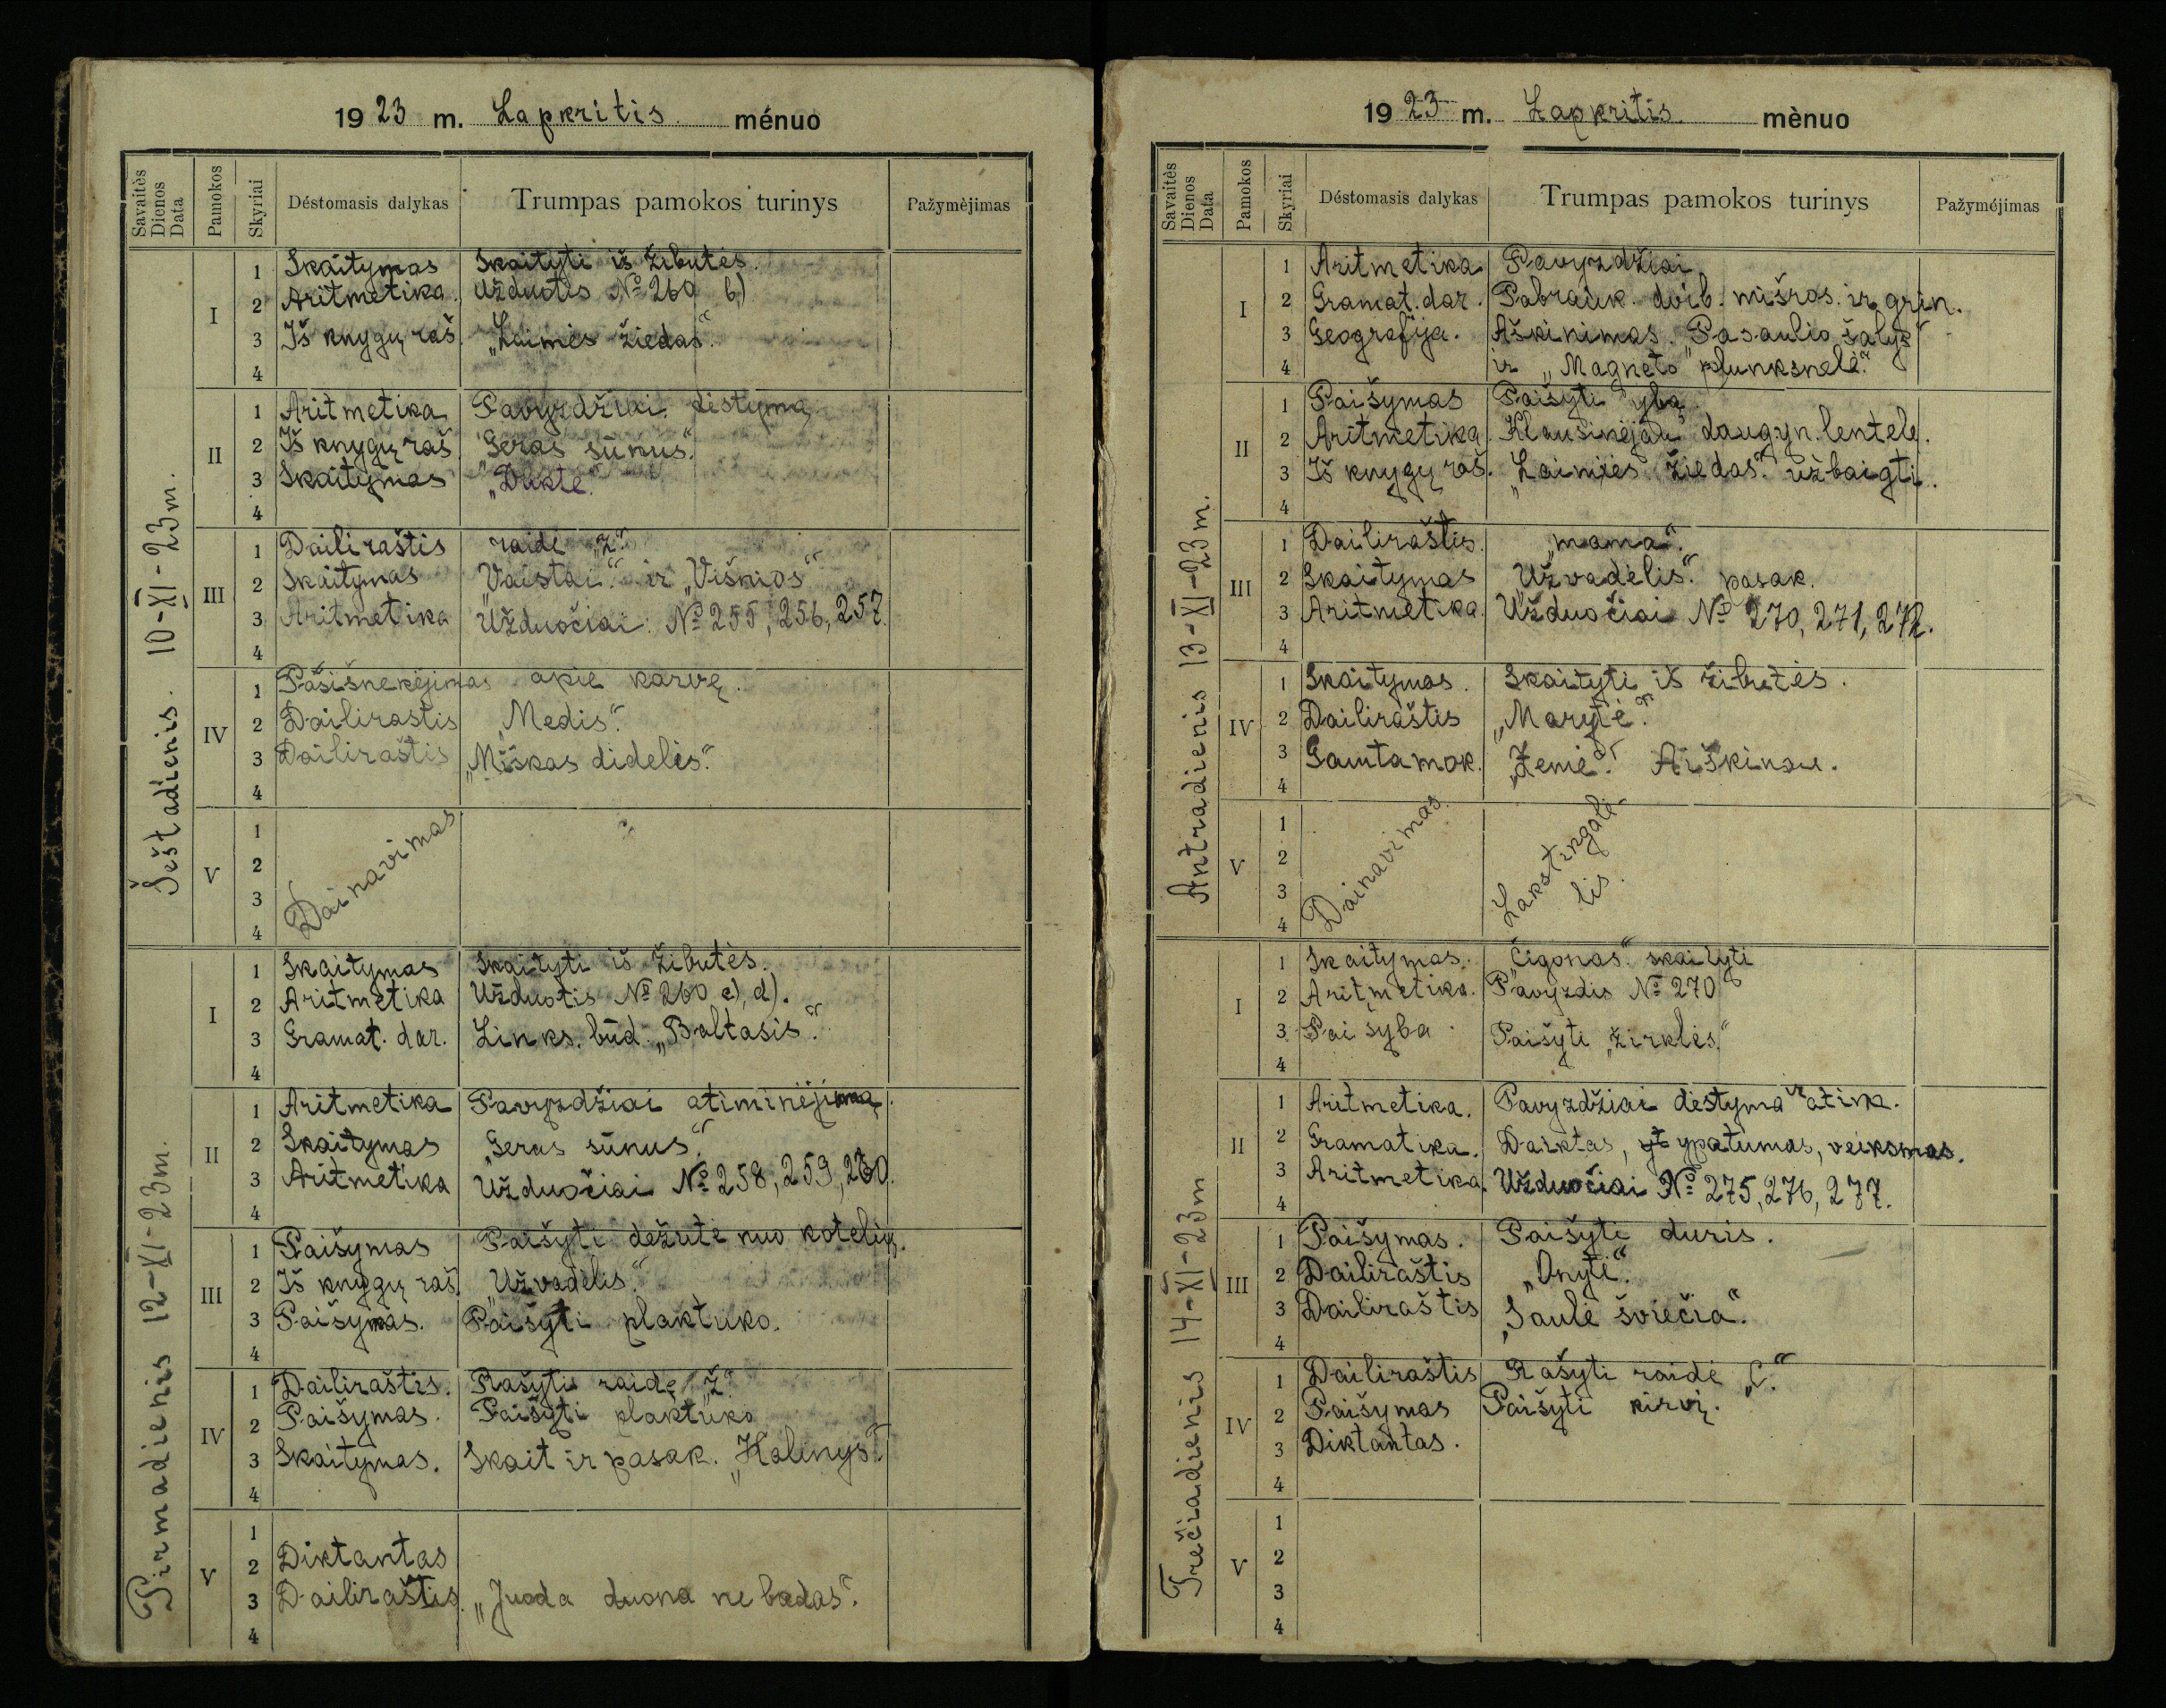 1923 m. Lapkritis ménuo
Savaitės Dienos Data
Pamokos
Skyriai
Déstomasis dalykas
Trumpas pamokos turinys
Pažymėjimas
Šeštadienis. 10-XI-23m.
I
1 Skaitymas Skaityti iš žibutės.
2 Aritmetika. Užduotis № 260 b)
3 Iš knygų raš. „Laimės žiedas“.
4
II
1 Aritmetika Pavyzdžiai dėstymą
2 Iš knygų raš. „Geras sūnus“.
3 Skaitymas „Duktė“.
4
III
1 Dailiraštis raidė „z“.
2 Skaitymas „Vaistai“ ir „Viškios“
3 Aritmetika Užduočiai № 255, 256, 257.
4
IV
1 Pašišnekėjimas apie karvę.
2 Dailirastis „Medis“.
3 Dailiraštis „Miškas didelės“.
4
V
1
2
3
4
Dainavimas
Pirmadienis 12-XI-23m.
I
1 Skaitymas Skaityti iš žibutės.
2 Aritmetika Užduotis № 260 c), d).
3 Gramat. dar. Links. būd. „Baltasis“.
4
II
1 Aritmetika Pavyzdžiai atiminėjimą.
2 Skaitymas „Geras sūnus“.
3 Aritmetika Užduočiai № 258, 259, 260.
4
III
1 Paišymas Paišyti dežutė nuo kotelių.
2 Iš knygų raš. „Užvadėlis“.
3 Paišymas. Paišyti plaktuko.
4
IV
1 Dailiraštis. Rašyti raidę „ž“.
2 Paišymas. Paišyti plaktuko
3 Skaitymas. Skait ir pasak. „Kalinys“.
4
V
1
2 Diktantas
3 Dailiraštis. „Juoda duona ne badas“.
4
1923 m. Lapkritis. mėnuo
Savaitės Dienos Data
Pamokos
Skyriai
Déstomasis dalykas
Trumpas pamokos turinys
Pažyméjimas
Antradienis 13-XI-23m.
I
1 Aritmetika Pavyzdžiai
2 Gramat. dar. Pabrauk. dvib. mišros. ir grin.
3 Geografija. Aškinimas. Pasaulio šalys
4 ir „Magneto“ plunksnelė“.
II
1 Paišymas Paišyti
2 Aritmetika. Klausinėjau daugyn. lentelę.
3 Iš knygų raš. „Laimies žiedas“. užbaigti.
4
III
1 Dailiraštis. „mama“.
2 Skaitymas „Užvadėlis“. pasak.
3 Aritmetika. Užduočiai № 270, 271, 272.
4
IV
1 Skaitymas. Skaityti iš žibutės.
2 Dailiraštis „Marytė“.
3 Gamtamok. „Žemė“. Aiškinau.
4
V
1
2
3
4
Dainavimas
Lakstingalė-
lis.
Trečiadienis 14-XI-23m
I
1 Skaitymas. „Čigonas“ skaityti
2 Aritmetika. Pavyzdis № 270
3 Paišyba. Paišyti „žirklės“
4
II
1 Aritmetika. Pavyzdžiai dėstyma ir atim.
2 Gramatika. Daiktas, ypatumas, veiksmas.
3 Aritmetika. Užduočiai № 275, 276, 277.
4
III
1 Paišymas. Paišyti duris.
2 Dailiraštis „Onytė“.
3 Dailiraštis „Saulė šviečia“.
4
IV
1 Dailiraštis Rašyti raidė „C“.
2 Paišymas Paišyti kirvį.
3 Diktantas.
4
V
1
2
3
4